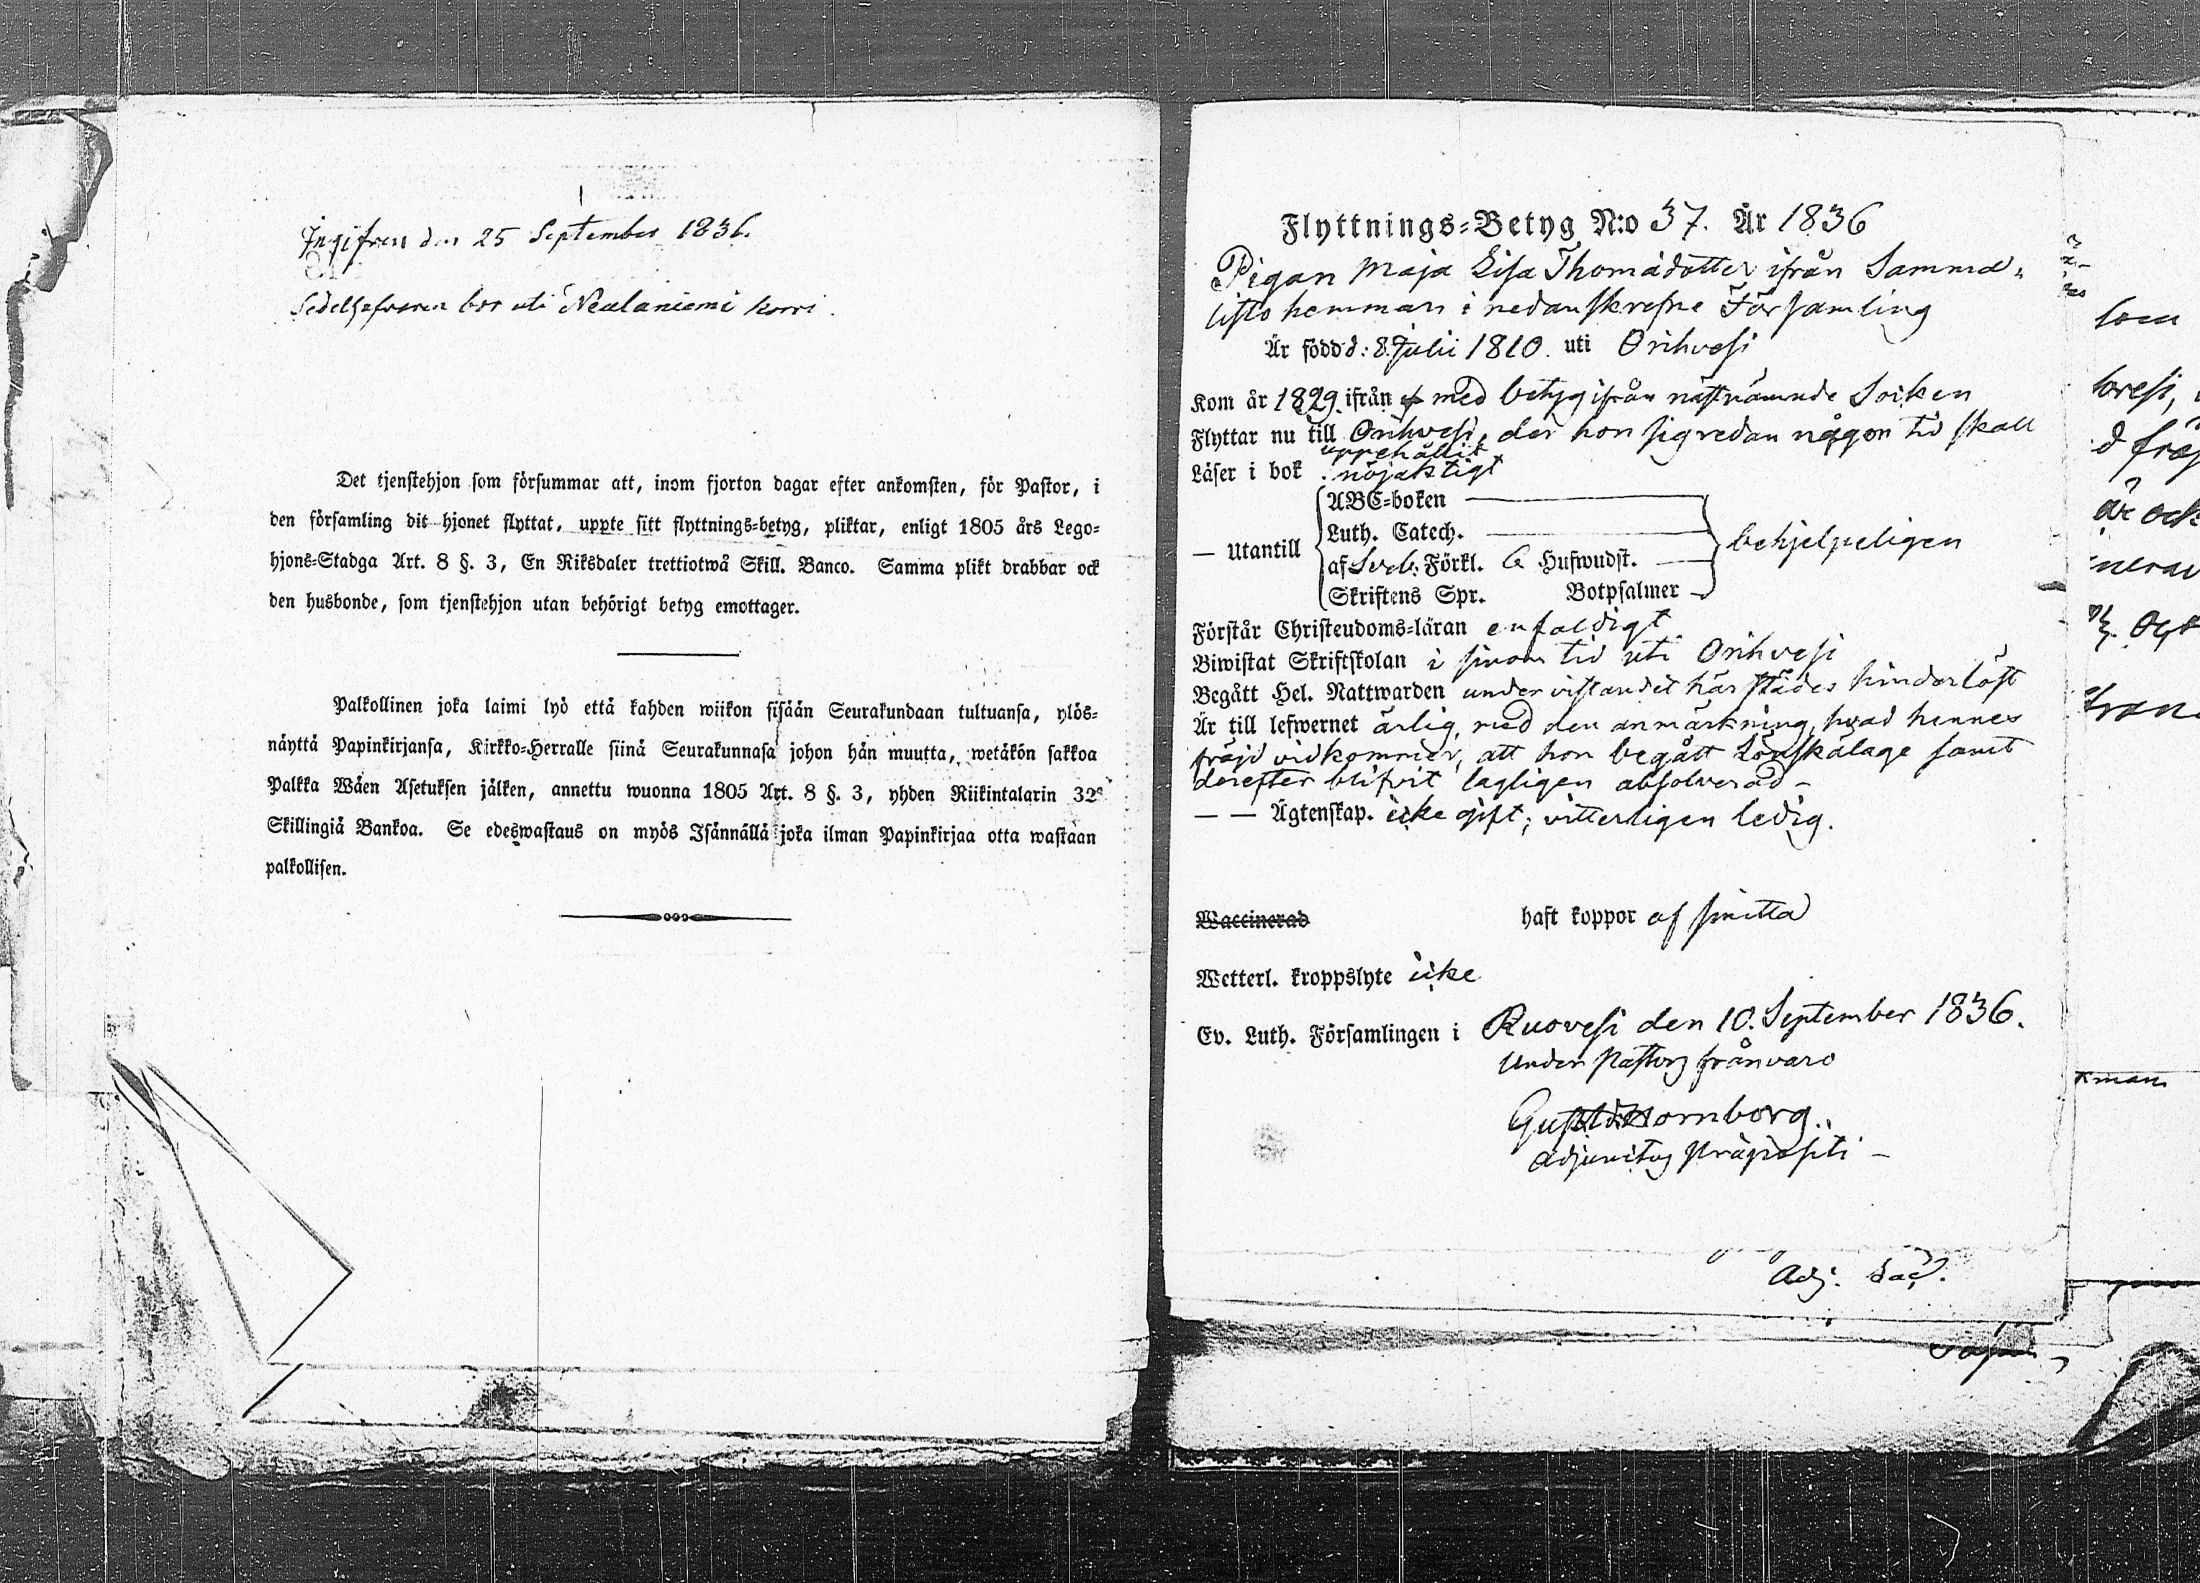 Ingifven den 25 September 1836.
Sedelhafvaren bor uti Neulaniemi korri.
Det tjenstehjon som försummar att, inom fjorton dagar efter ankomsten, för Pastor, i
den församling dit hjonet flyttat, uppte sitt flyttnings-betyg, pliktar, enligt 1805 års Lego-
hjons-Stadga Art. 8 §. 3, En Riksdaler trettiotwå Skill. Banco. Samma plikt drabbar ock
den husbonde, som tjenstehjon utan behörigt betyg emottager.
Palkollinen joka laimi lyö että kahden wiikon sisään Seurakundaan tultuansa, ylös-
näyttä Papinkirjansa, Kirkko-Herralle siinä Seurakunnasa johon hän muutta, wetäkön sakkoa
Palkka Wäen Asetuksen jälken, annettu wuonna 1805 Art. 8 §. 3, yhden Riikintalarin 32
Skillingiä Bankoa. Se edeswastaus on myös Isännällä joka ilman Papinkirjaa otta wastaan
palkollisen.
Flyttnings-Betyg N:o 37. År 1836
Pigan Maja Lisa Thomädotter ifrån Sammal-
listo hemman i nedanskrefne Församling
Är född d: 8. Julii 1810. uti Orihvesi
Kom år 1829. ifrån med betyg ifrån nästnämnde Socken
Flyttar nu till Orihvesi, der hon sig redan någon tid skall
uppehållit
Läser i bok nöjaktigt
ABC-boken
Luth. Catech.
— Utantill af Sveb. Förkl. 6 Hufwudst. behjelpeligen
Skriftens Spr. Botpsalmer
Förstår Christeudoms-läran enfaldigt
Biwistat Skriftskolan i sinom tid uti Orihvesi
Begått Hel. Nattwarden under vistandet här städes hinderlöst
Är till lefwernet ärlig, med den anmärkning, hvad hennes
fräjd vidkommer, att hon begått Lönskaläge samt
derefter blifvit lagligen absolverad –
— — Ägtenskap. icke gift; vitterligen ledig.
Waccinerad haft koppor af smitta
Wetterl. kroppslyte icke
Ev. Luth. Församlingen i Ruovesi den 10. September 1836.
Under Pastors frånvaro
Gust. Hornborg.
Adjunctus Præpositi –
Adj. Sac.